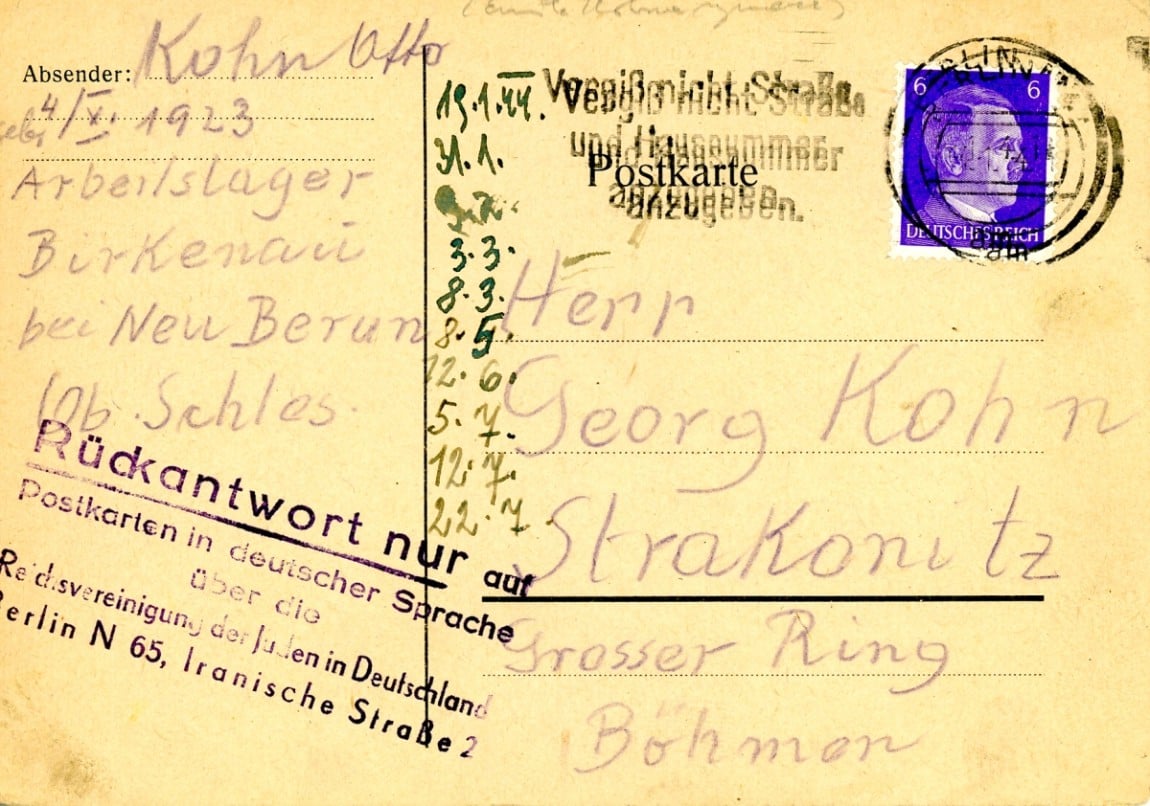 Absender: Kohn Otto
geb. 4/X. 1923
Arbeitslager
Birkenau
bei Neu Berun
Ob. Schles.
Rückantwort nur auf
Postkarten in deutscher Sprache
über die
Reichsvereinigung der Juden in Deutschland
Berlin N 65, Iranische Straße 2
19.1.44.
31.1.
3.3.
8.3.
8.5.
12.6.
5.7.
12.7.
22.7.
Vergiß nicht Straße
und Hausnummer
anzugeben.
Postkarte
6 6
DEUTSCHES REICH
BERLIN
Herr
Georg Kohn
Strakonitz
Grosser Ring
Böhmen